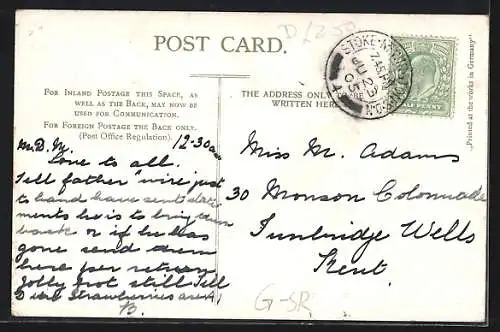 D £2.50
POST CARD.
FOR INLAND POSTAGE THIS SPACE, AS
WELL AS THE BACK, MAY NOW BE
USED FOR COMMUNICATION.
FOR FOREIGN POSTAGE THE BACK ONLY.
(Post Office Regulation).
THE ADDRESS ONLY
WRITTEN HERE
STOKE NEWINGTON
7.45 PM
JU 23
05
HALF PENNY
"Printed at the works in Germany"
12-30am
Love to all.
Tell father "wire just
to hand have sent state
ments he is to bring them
back or if he has
gone send them
here per return
Jolly hot still Tell
Strawberries are A1
B.
Miss M. Adams
30 Monson Colonnade
Tunbridge Wells
Kent.
G-SR